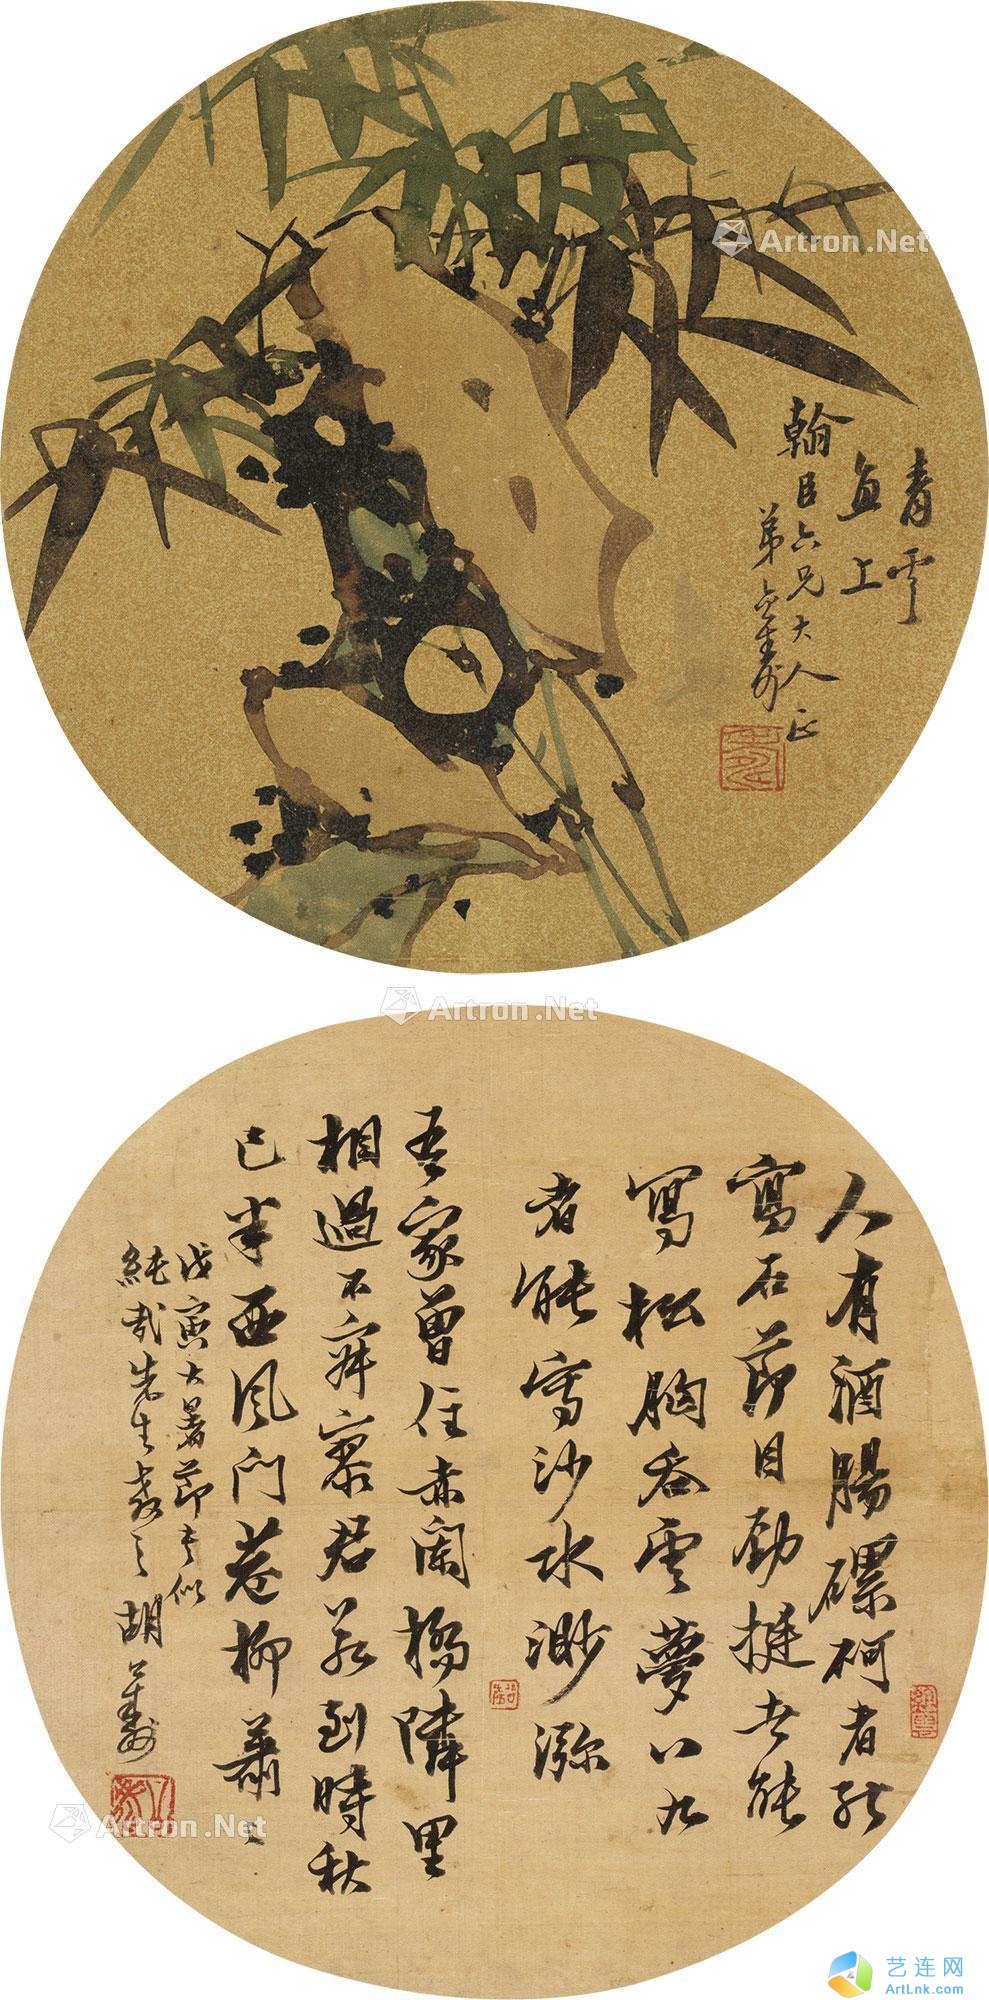 青雲
直上
翰臣六兄大人正
弟公壽
Artron.Net
Artron.Net
人有酒腸磥砢者能
寫石節目勁挺者能
寫松胸吞雲夢八九
者能寫沙水渺瀰
吾家曾住赤闌橋隣里
相過不寂寥君若到時秋
已半西風門巷柳蕭〻
戊寅大暑節書似
純哉先生教之 胡公壽
Artron.Net
艺连网
ArtLnk.com